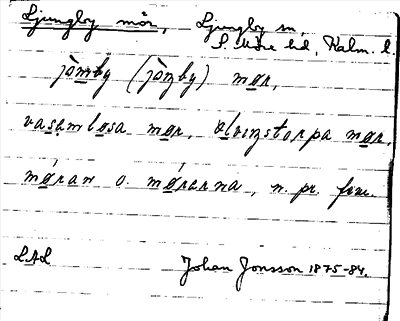 Ljungby mör, Ljungby sn,
S. Möre hd, Kalm. l.
jòmby (jòŋby) mør,
vasamløsa mør, ølviŋstorpa mør,
møran o. mørarna, n. pr. fem.
LAL Johan Jonsson 1875-84.